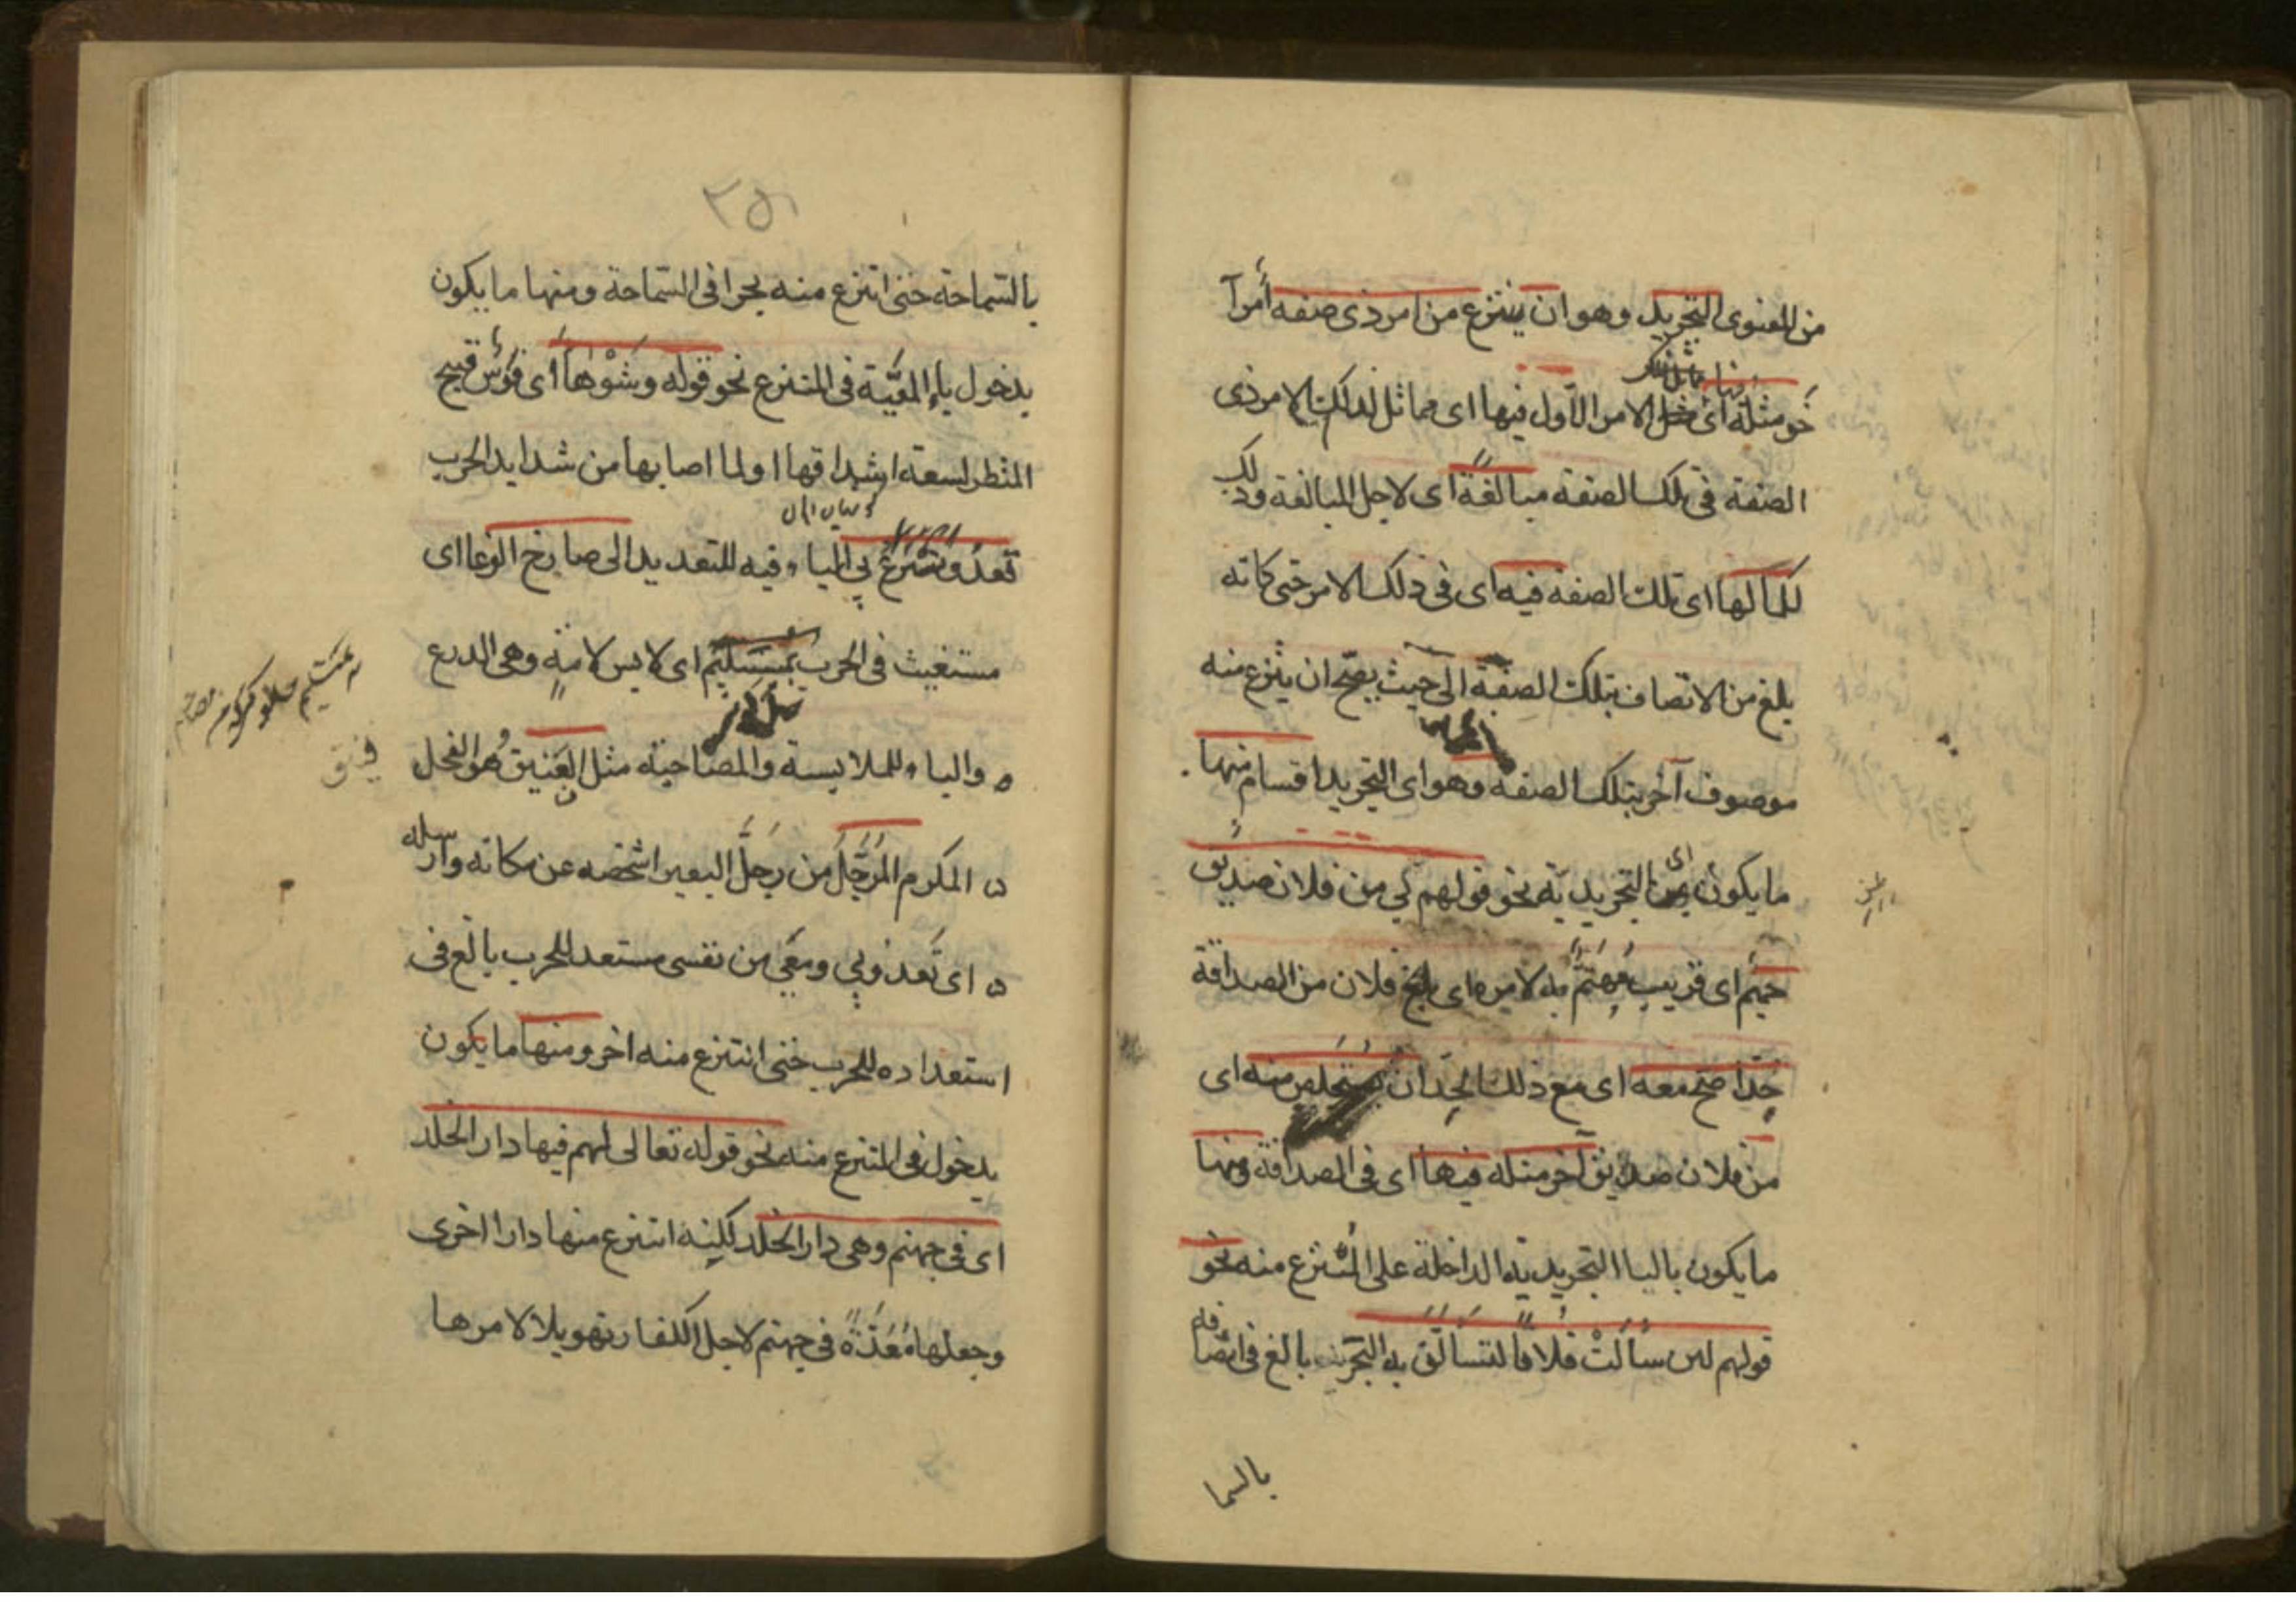 من المعنوى التجريد وهو ان ينتزع من امر ذى صفه أمرآ
آخر مثله اى الامر الاول فيها اى مماثل لذلك الامر ذى
الصفة فى تلك الصفة مبالغةً اى لاجل المبالغة وذلك
لكمالها اى تلك الصفة فيه اى فى ذلك الامر حتى كانه
بلغ من الاتصاف بتلك الصفة الى حيث يصح ان ينتزع منه
موصوف آخر بتلك الصفة وهو اى التجريد اقسام منها
ما يكون بمن التجريدية نحو قولهم لى من فلان صديق
حميم اى قريب مُهتمّ به لامره اى بلغ فلان من الصداقة
حدا صح معه اى مع ذلك الحد ان يستخلص منه اى
من فلان صديق آخر مثله فيها اى فى الصداقة ومنها
ما يكون بالباا التجريدية الداخلة على المُنتزع منه نحو
قولهم لئن سألت فلانا لتسألن به البحر بالغ فى اتصافه
بالسما
٢٥١
بالسّماحة حتى انتزع منه بحرا فى السّماحة ومنها ما يكون
بدخول باء المعيّة فى المنتزع نحو قوله وشوْهاَ اى فرس قبيح
المنظر لسعة اشداقها او لما اصابها من شدايد الحرب
تعدو بى الباء فيه للتعديه الى صارخ الوغا اى
مستغيث فى الحرب بمستليم اى لابس لامةٍ وهى الدرع
والباء للملابسة والمصاحبة مثل الفنيق هُو الفحل
المكرم المُرَحَّلُ من رحَّل البعير اشخصه عن مكانه وارسله
اى تعدو بى ومعى من نفسى مستعد للحرب بالغ فى
استعداده للحرب حتى انتزع منه اخر ومنها ما يكون
بدخول فى المنتزع منه نحو قوله تعالى لهم فيها دار الخلد
اى فى جهنم وهى دار الخلد لكنه انتزع منها دارا اخرى
وجعلها مُعَدّةً فى جهنم لاجل الكفار تهويلا لامرها
فنيق